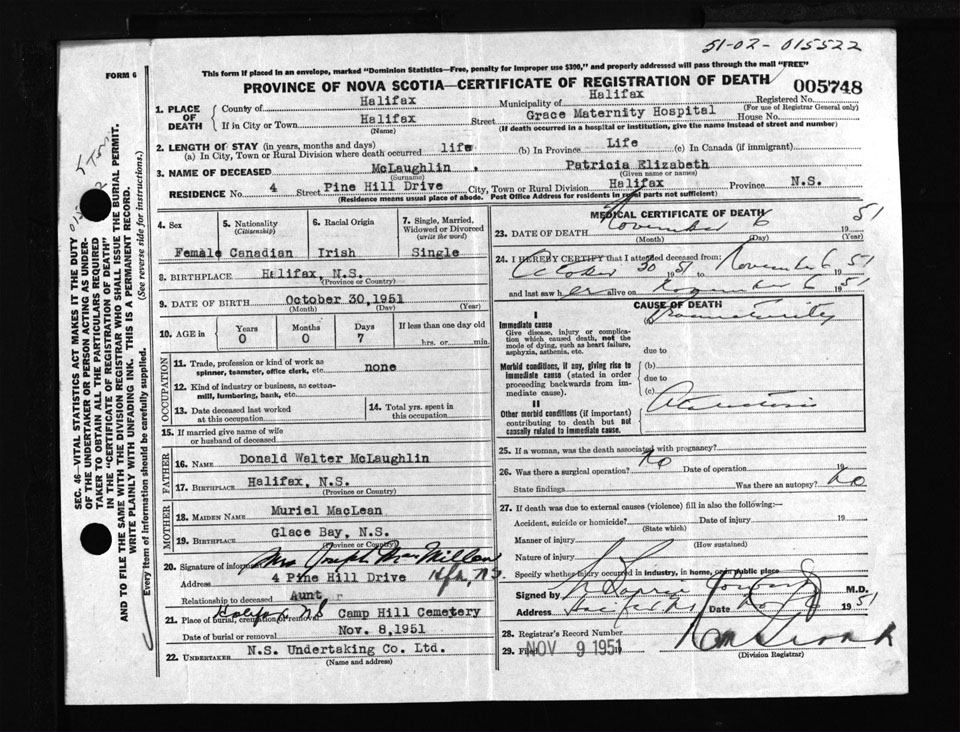 51-02-015522
FORM 6
This form if placed in an envelope, marked "Dominion Statistics—Free, penalty for improper use $300," and properly addressed will pass through the mail "FREE"
PROVINCE OF NOVA SCOTIA—CERTIFICATE OF REGISTRATION OF DEATH
005748
1. PLACE OF DEATH
County of Halifax
Municipality of Halifax
Registered No.
(For use of Registrar General only)
If in City or Town Halifax
(Name)
Street Grace Maternity Hospital House No.
(If death occurred in a hospital or institution, give the name instead of street and number)
2. LENGTH OF STAY (in years, months and days)
(a) In City, Town or Rural Division where death occurred life (b) In Province Life (c) In Canada (if immigrant)
3. NAME OF DECEASED McLaughlin, Patricia Elizabeth
(Surname) (Given name or names)
RESIDENCE No. 4 Street Pine Hill Drive City, Town or Rural Division Halifax Province N.S.
(Residence means usual place of abode. Post Office Address for residents in rural parts not sufficient)
4. Sex
Female
5. Nationality
(Citizenship)
Canadian
6. Racial Origin
Irish
7. Single, Married, Widowed or Divorced
(write the word)
Single
8. BIRTHPLACE Halifax, N.S.
(Province or Country)
9. DATE OF BIRTH October 30, 1951
(Month) (Day) (Year)
10. AGE in
Years Months Days If less than one day old
0 0 7 hrs. or min.
OCCUPATION
11. Trade, profession or kind of work as spinner, teamster, office clerk, etc. none
12. Kind of industry or business, as cotton-mill, lumbering, bank, etc.
13. Date deceased last worked at this occupation
14. Total yrs. spent in this occupation
15. If married give name of wife or husband of deceased
FATHER
16. NAME Donald Walter McLaughlin
17. BIRTHPLACE Halifax, N.S.
(Province or Country)
MOTHER
18. MAIDEN NAME Muriel MacLean
19. BIRTHPLACE Glace Bay, N.S.
(Province or Country)
20. Signature of informant Mrs Joseph MacMillan
Address 4 Pine Hill Drive Hfx, N.S.
Relationship to deceased Aunt
21. Place of burial, cremation or removal Halifax NS Camp Hill Cemetery
Date of burial or removal Nov. 8, 1951
22. UNDERTAKER N.S. Undertaking Co. Ltd.
(Name and address)
MEDICAL CERTIFICATE OF DEATH
23. DATE OF DEATH November 6 1951
(Month) (Day) (Year)
24. I HEREBY CERTIFY that I attended deceased from:
October 30 1951 to November 6 1951
and last saw her alive on November 6 1951
CAUSE OF DEATH
I
Immediate cause
Give disease, injury or complication which caused death, not the mode of dying, such as heart failure, asphyxia, asthenia, etc.
Prematurity
due to
Morbid conditions, if any, giving rise to immediate cause (stated in order proceeding backwards from immediate cause).
(b)
due to
(c)
II
Other morbid conditions (if important) contributing to death but not causally related to immediate cause.
Atelectasis
25. If a woman, was the death associated with pregnancy?
26. Was there a surgical operation? No Date of operation 19
State findings Was there an autopsy? No
27. If death was due to external causes (violence) fill in also the following:—
Accident, suicide or homicide? Date of injury 19
(State which)
Manner of injury
(How sustained)
Nature of injury
Specify whether injury occurred in industry, in home, or in public place
Signed by M.D.
Address Halifax NS Date Nov 1951
28. Registrar's Record Number
29. Filed NOV 9 1951
(Division Registrar)
SEC. 46—VITAL STATISTICS ACT MAKES IT THE DUTY OF THE UNDERTAKER OR PERSON ACTING AS UNDERTAKER TO OBTAIN ALL THE PARTICULARS REQUIRED IN THE "CERTIFICATE OF REGISTRATION OF DEATH" AND TO FILE THE SAME WITH THE DIVISION REGISTRAR WHO SHALL ISSUE THE BURIAL PERMIT.
WRITE PLAINLY WITH UNFADING INK. THIS IS A PERMANENT RECORD.
Every item of information should be carefully supplied. (See reverse side for instructions.)